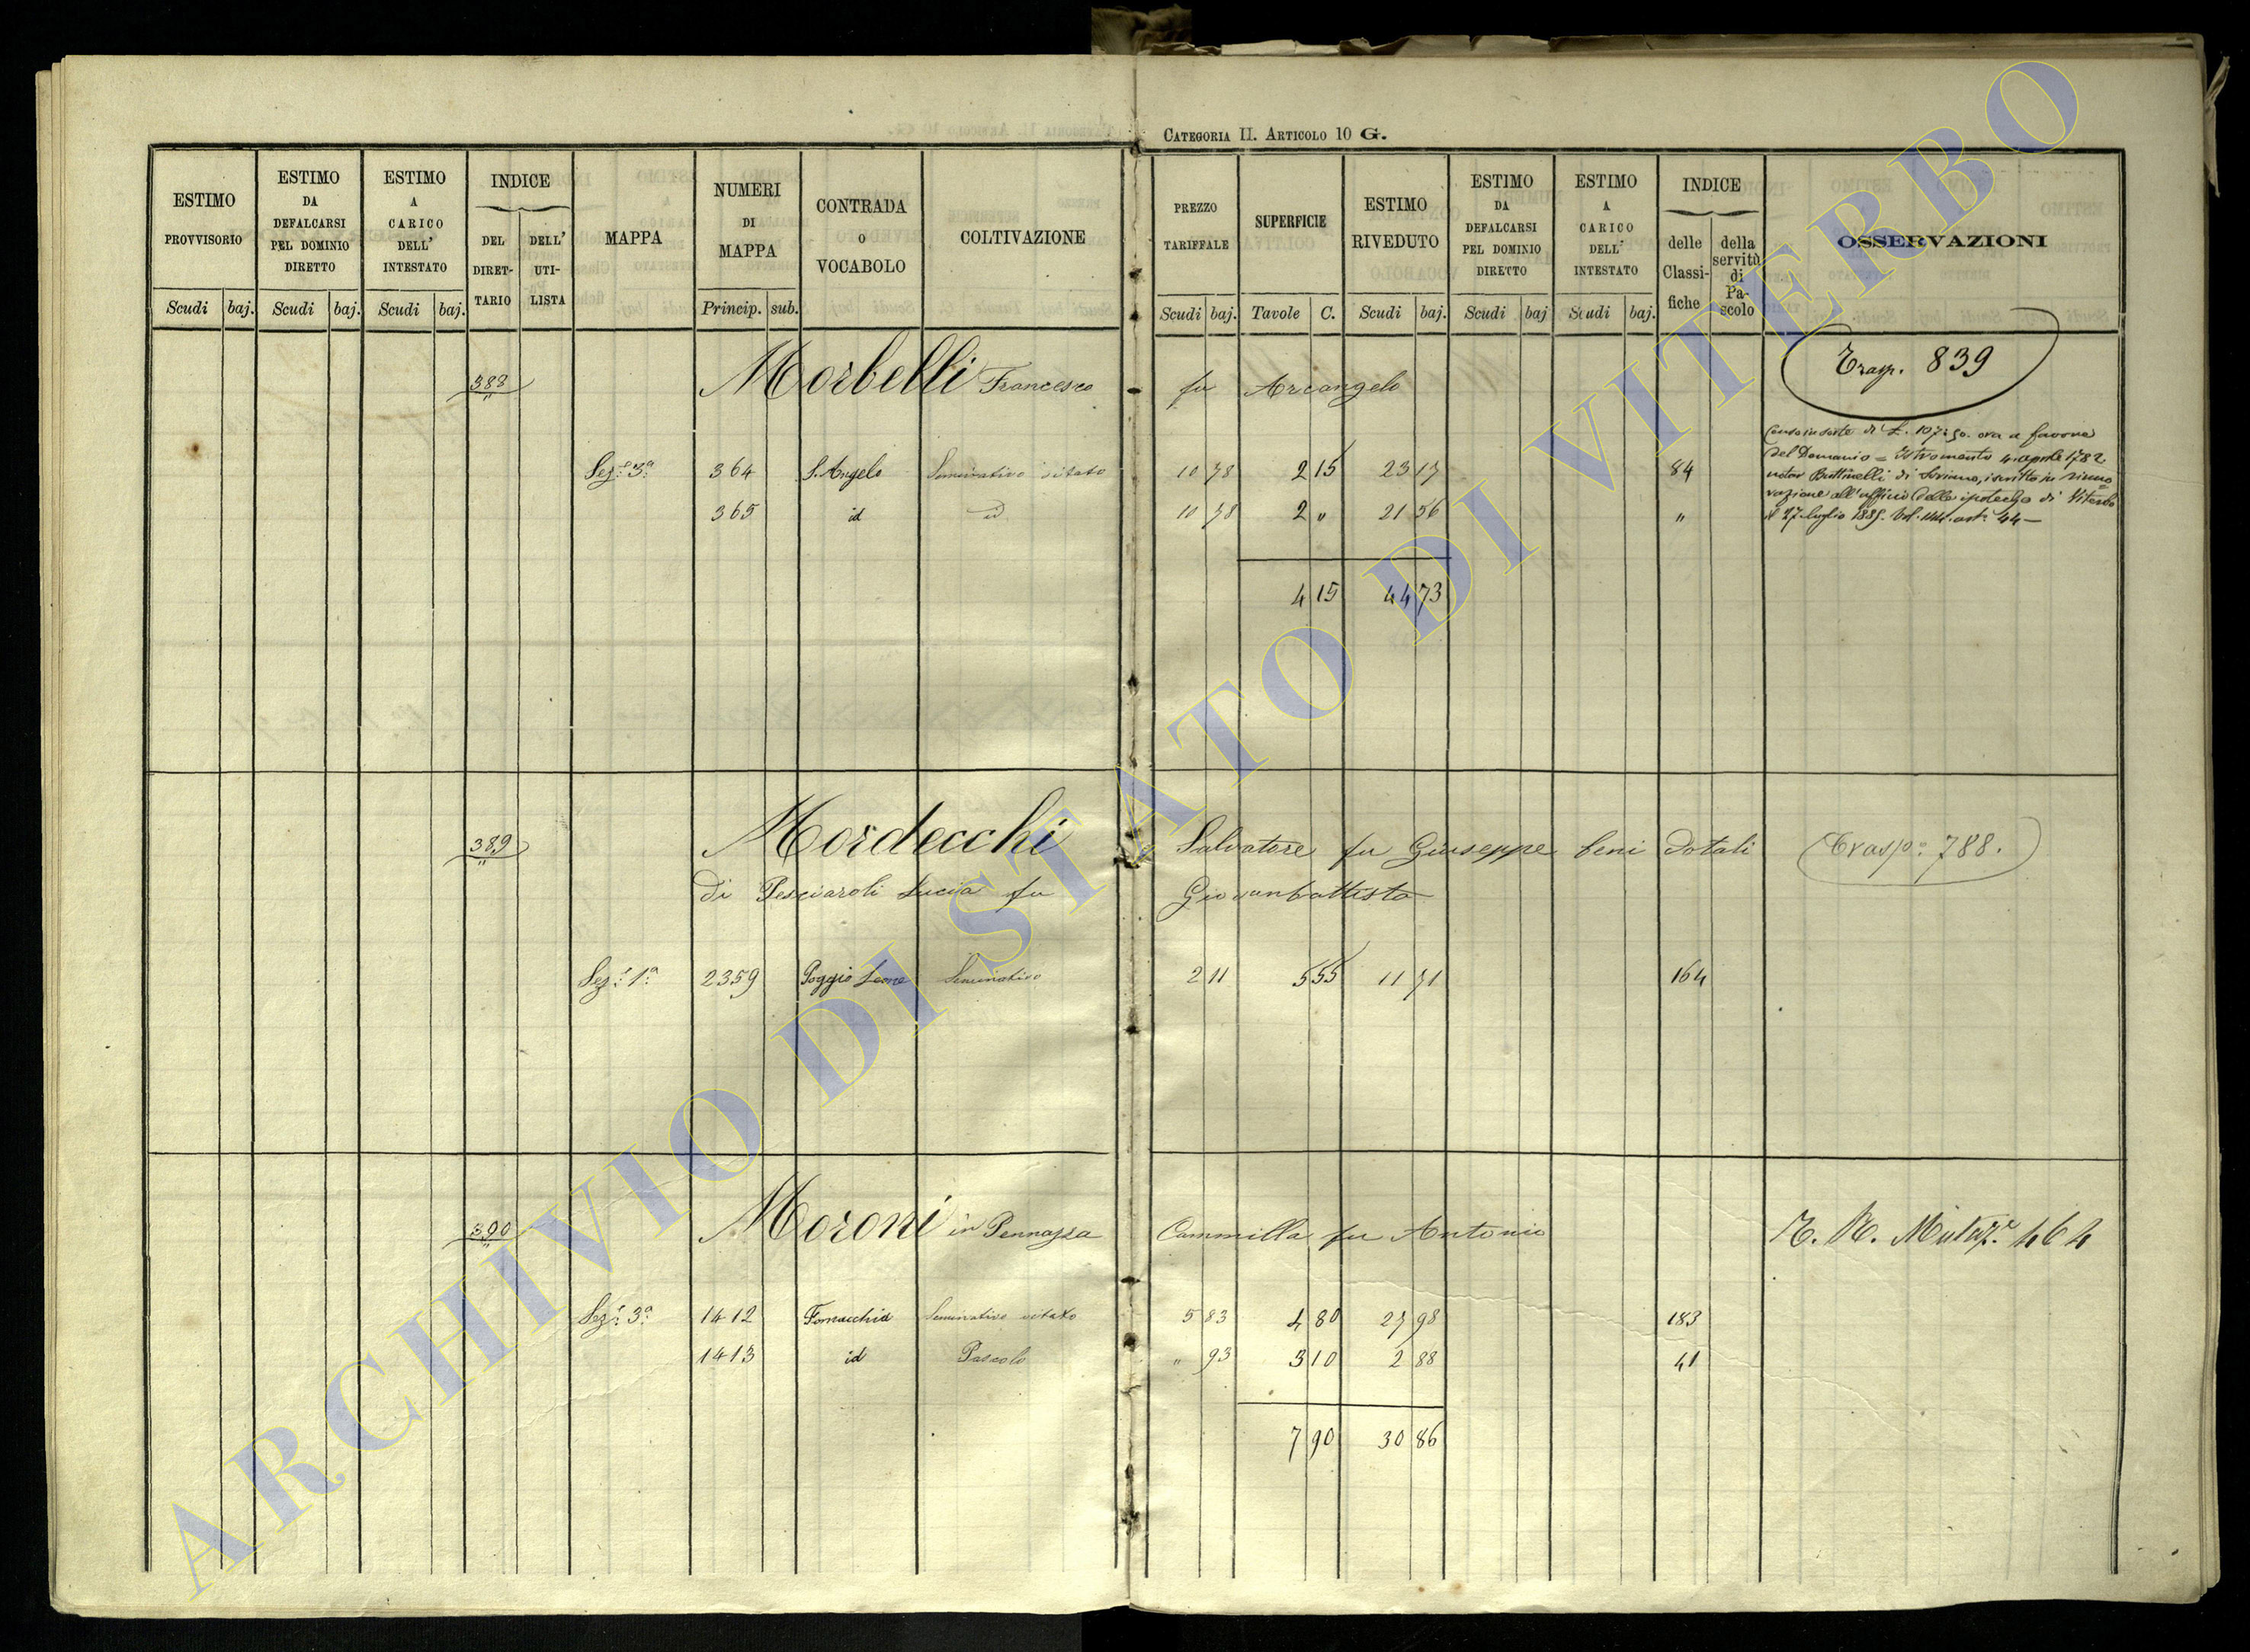 CATEGORIA II. ARTICOLO 10 G.
ESTIMO PROVVISORIO Scudi baj.
ESTIMO DA DEFALCARSI PEL DOMINIO DIRETTO Scudi baj.
ESTIMO A CARICO DELL' INTESTATO Scudi baj.
INDICE DEL DIRETTARIO DELL' UTILISTA
MAPPA
NUMERI DI MAPPA Princip. sub.
CONTRADA O VOCABOLO
COLTIVAZIONE
PREZZO TARIFFALE Scudi baj.
SUPERFICIE Tavole C.
ESTIMO RIVEDUTO Scudi baj.
ESTIMO DA DEFALCARSI PEL DOMINIO DIRETTO Scudi baj
ESTIMO A CARICO DELL' INTESTATO Scudi baj.
INDICE delle Classifiche della servitù di Pascolo
OSSERVAZIONI
388 Morbelli Francesco fu Arcangelo Trasp. 839
Sez.e 3a 364 S. Angelo Seminativo vitato 10 78 2 15 23 17 84
365 id id 10 78 2 " 21 56 "
4 15 44 73
ora a favore
del Demanio = Istromento 4 aprile 1782
vazione all'ufficio delle ipoteche di Viterbo
luglio 1885. Vol. art. 44 —
389 Mordecchi Salvatore fu Giuseppe beni dotali Trasp: 788.
di Pesciaroli Lucia fu Giovanbattista
Sez.e 1a 2359 Poggio Leone Seminativo 2 11 5 55 11 71 164
390 Moroni in Pennazza Cammilla fu Antonio R. Mutaz.e 464
Sez.e 3a 1412 Fornacchia Seminativo vitato 5 83 4 80 27 98 183
1413 id Pascolo " 93 3 10 2 88 41
7 90 30 86
ARCHIVIO DI STATO DI VITERBO